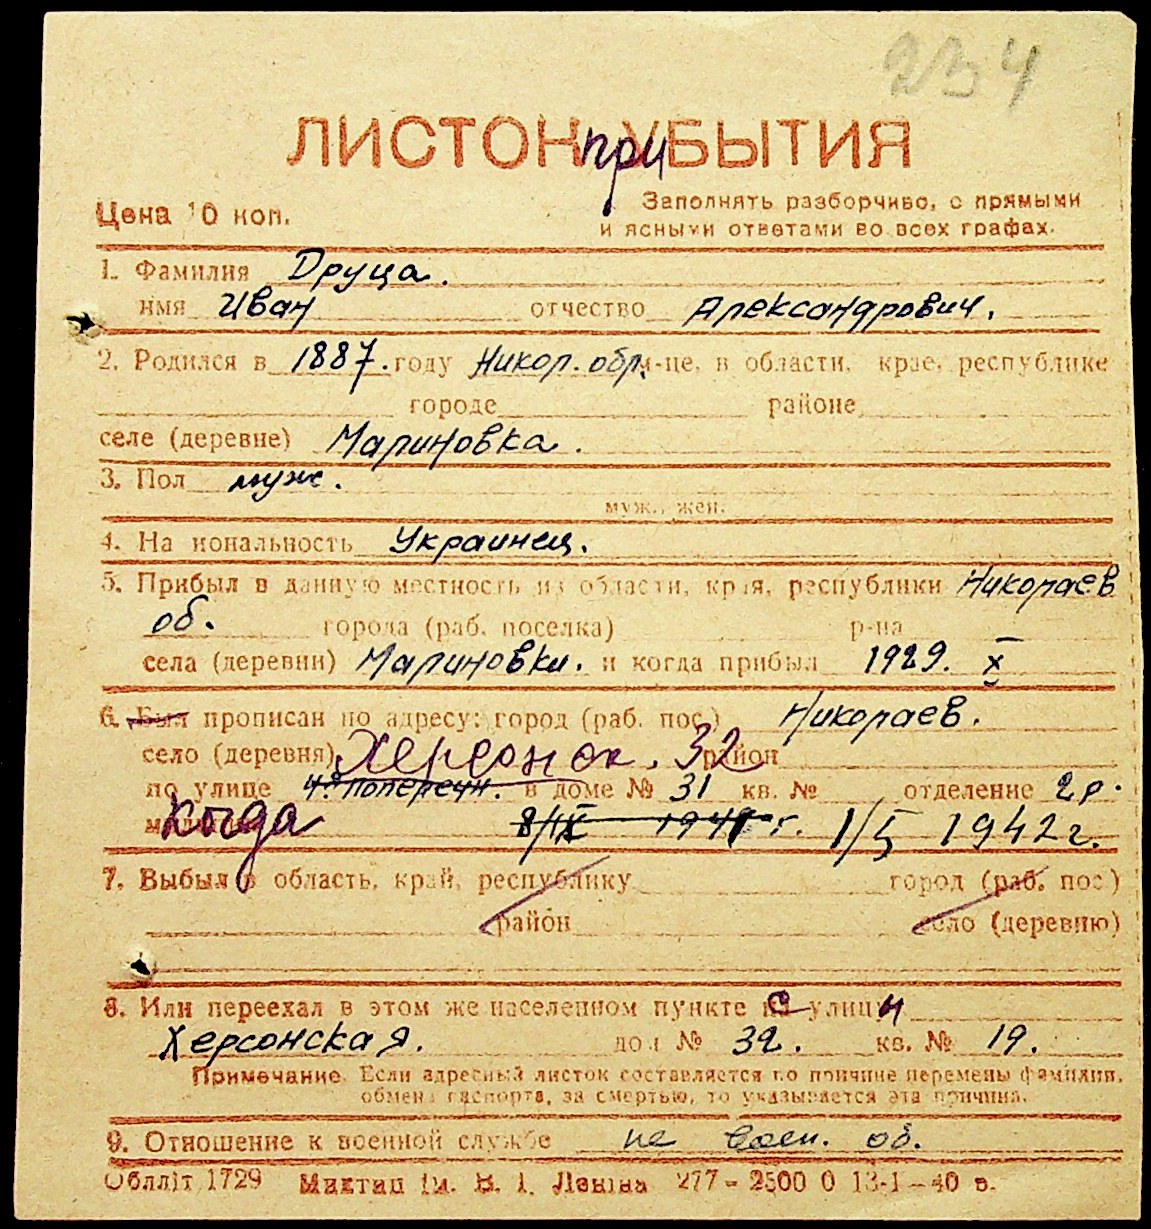 234
ЛИСТОК при УБЫТИЯ
Цена 10 коп.
Заполнять разборчиво, с прямыми
и ясными ответами во всех графах.
1. Фамилия Друца.
имя Иван отчество Александрович.
2. Родился в 1887. году Никол. обл. м-це, в области, крае, республике
городе районе
селе (деревне) Малиновка.
3. Пол муж.
муж., жен.
4. На иональность Украинец.
5. Прибыл в данную местность из области, края, республики Николаев
об. города (раб. поселка) р-на
села (деревни) Малиновки. и когда прибыл 1929. X
6. Был прописан по адресу: город (раб. пос.) Николаев.
село (деревня) Херсонск. 32 район
по улице 4ᵃ попереч. в доме № 31 кв. № отделение 2 р.
когда 8/IX 1941 г. 1/5 1942 г.
7. Выбыл в область, край, республику город (раб. пос.)
район село (деревню)
8. Или переехал в этом же населенном пункте с улицы
Херсонская. дом № 32. кв. № 19.
Примечание. Если адресный листок составляется по причине перемены фамилии,
обмена паспорта, за смертью, то указывается эта причина.
9. Отношение к военной службе не воен. об.
Облліт 1729 Миктип Ім. В. І. Леніна 277-2500 0 13-1-40 в.